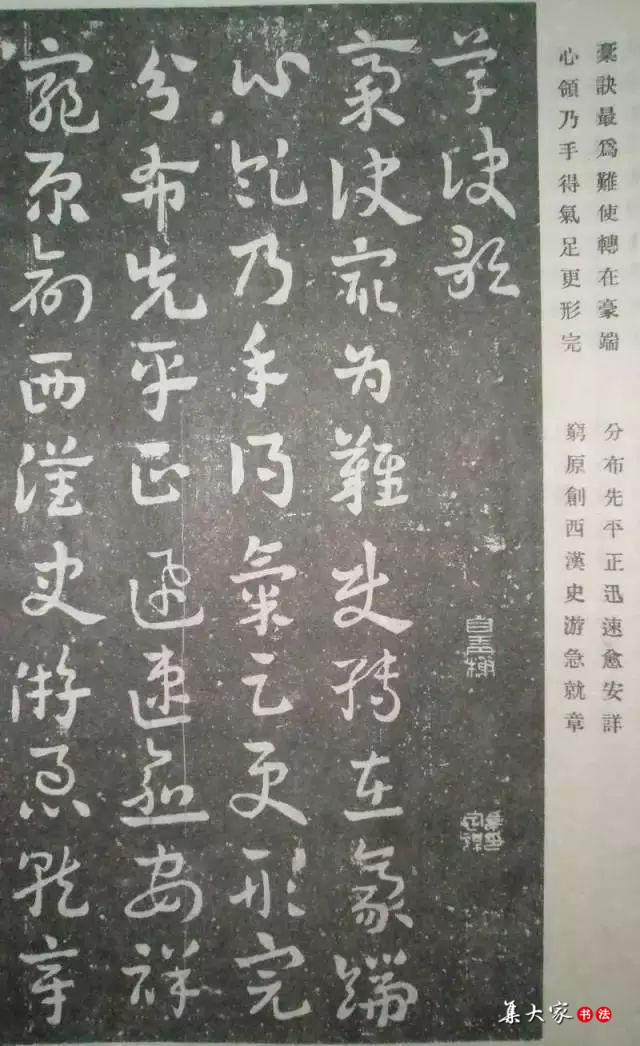 稾訣最爲難使轉在豪端
心領乃手得氣足更形完
分布先平正迅速愈安詳
窮原創西漢史游急就章
草訣歌
稾訣最為難使轉在豪端
心領乃手得氣足更形完
分布先平正迅速愈安祥
窮原創西漢史游急就章
集大家书法